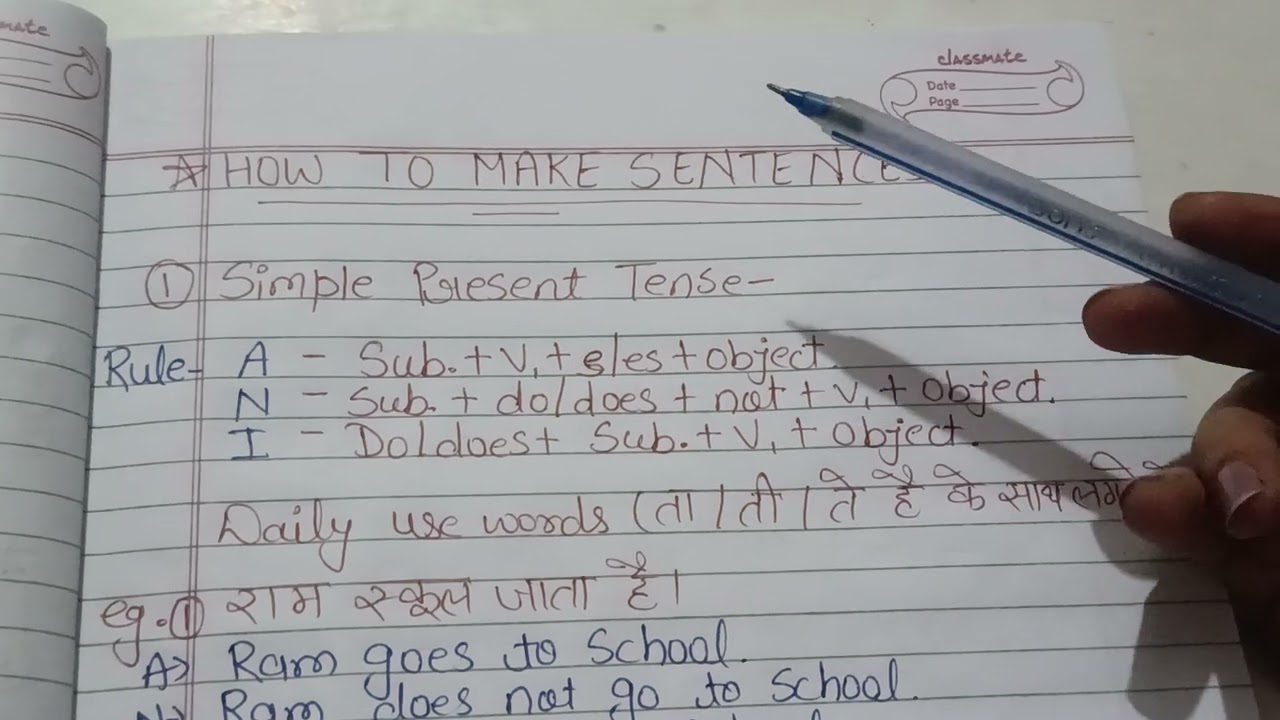 mate
classmate
Date
Page
☆ HOW TO MAKE SENTENCE
① Simple Present Tense-
Rule- A - Sub. + V₁ + s/es + object.
N - Sub. + do/does + not + V₁ + object.
I - Do/does + Sub. + V₁ + object.
Daily use words (ता / ती / ते है के साथ लगे
eg. ① राम स्कूल जाता है।
A> Ram goes to School.
N> Ram does not go to School.